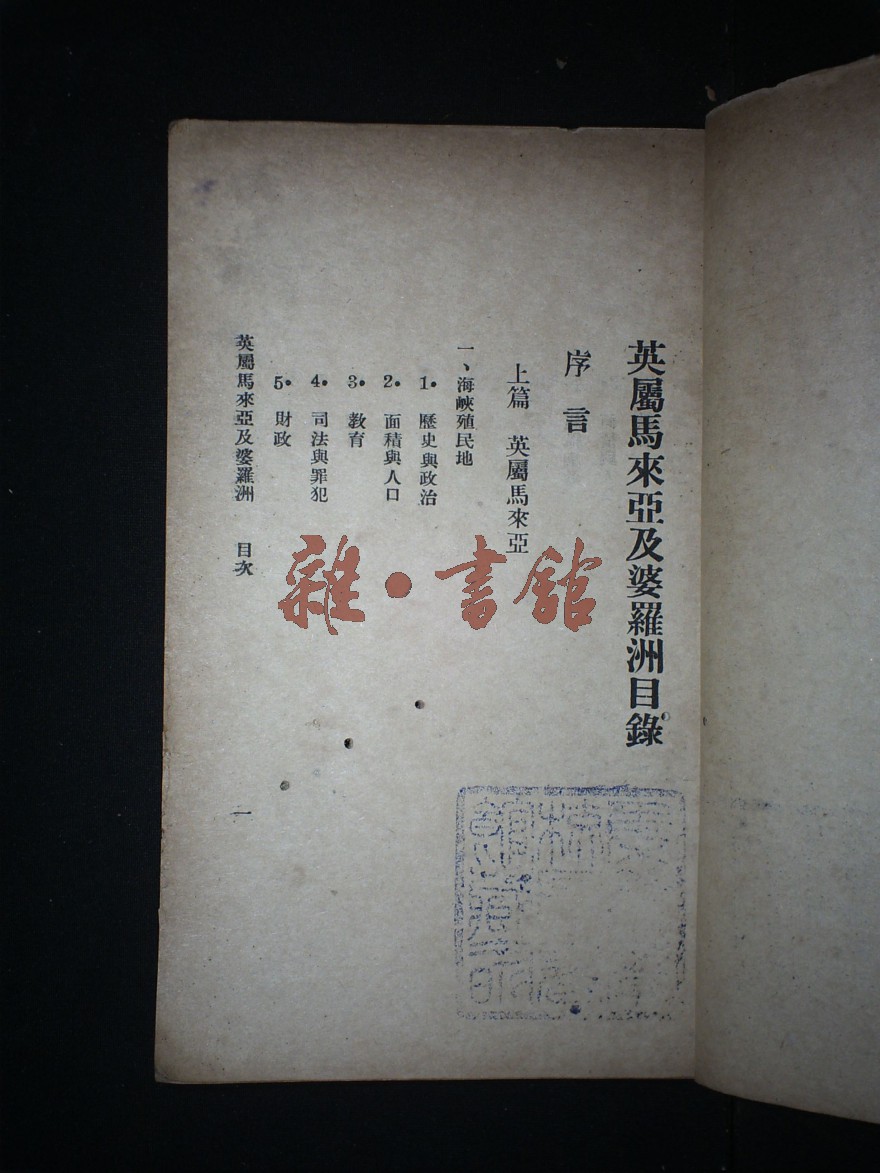 英屬馬來亞及婆羅洲目錄
序言
上篇 英屬馬來亞
一、海峽殖民地
1. 歷史與政治
2. 面積與人口
3. 教育
4. 司法與罪犯
5. 財政
英屬馬來亞及婆羅洲 目次
一
雜·書館